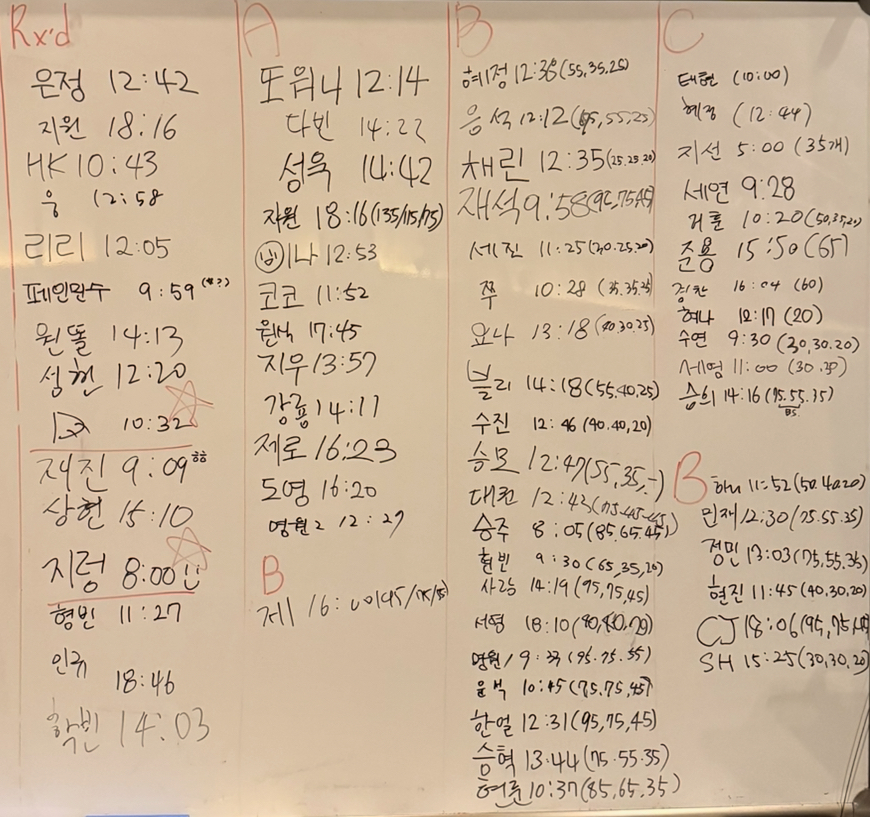 Rx'd
은정 12:42
지원 18:16
HK 10:43
웅 12:58
리리 12:05
페인원수 9:59 (**?)
원똘 14:13
성현 12:20
10:32
재진 9:09 ㅎㅎ
상현 15:10
지렁 8:00
형빈 11:27
인규 18:46
학빈 14:03
A
또와니 12:14
다빈 14:22
성욱 14:42
지원 18:16 (135/115/75)
이나 12:53
코코 11:52
원석 17:45
지우 13:57
강룡 14:11
제로 16:23
도영 16:20
영원2 12:27
B
제1 16:
B
혜정 12:38 (55,35,25)
음석 12:12 (65,55,25)
채린 12:35 (25.25.20)
재석 9:58 (95,75,45)
세진 11:25 (30.25.20)
쭈 10:28 (35.35.25)
요나 13:18 (40.30.25)
블리 14:18 (55.40.25)
수진 12:46 (40.40,20)
승모 12:47 (55,35,-)
대권 12:43 (75.45.45)
승주 8:05 (85.65.45)
현빈 9:30 (65,35,20)
사랑 14:19 (95,75,45)
서영 18:10
영원1 9:33 (95.75.55)
윤석 10:45 (75.75,45)
한얼 12:31 (95,75,45)
승혁 13:44 (75.55.35)
현준 10:37 (85,65,35)
C
태현 (10:00)
혜정 (12:44)
지선 5:00 (35개)
세연 9:28
10:20 (50,35,20)
준용 15:50 (65)
경찬 16:04 (60)
혀나 12:17 (20)
수연 9:30 (30,30.20)
세영 11:00
승희 14:16 (75.55.35)
85
B
하니 11:52 (50.40.20)
민재 12:30 (75.55.35)
정민 13:03 (75,55.35)
현진 11:45 (40,30,20)
CJ 18:06 (95,75,45)
SH 15:25 (30,30,20)